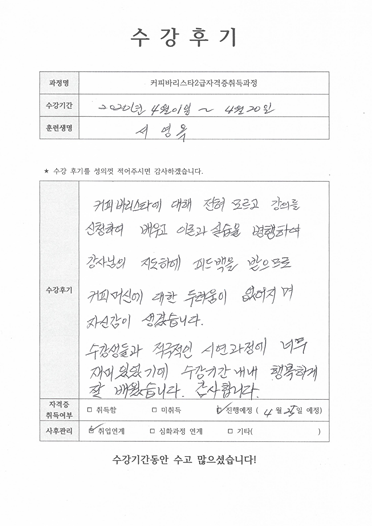 수 강 후 기
과정명 커피바리스타2급자격증취득과정
수강기간 2020년 4월01일 ~ 4월20일
훈련생명 서영옥
★ 수강 후기를 성의껏 적어주시면 감사하겠습니다.
수강후기
커피바리스타에 대해 전혀 모르고 강의를
신청하여 배우고 이론과 실습을 병행하여
강사님의 지도하에 피드백을 받으므로
커피머신에 대한 두려움이 없어지며
자신감이 생겼습니다.
수강생들과 적극적인 시연과정에 너무
재미있었기에 수강기간 내내 행복하게
잘 배웠습니다. 감사합니다.
자격증 취득여부 □ 취득함 □ 미취득 ☑ 진행예정 ( 4 월 25일 예정)
사후관리 ☑ 취업연계 □ 심화과정 연계 □ 기타( )
수강기간동안 수고 많으셨습니다!